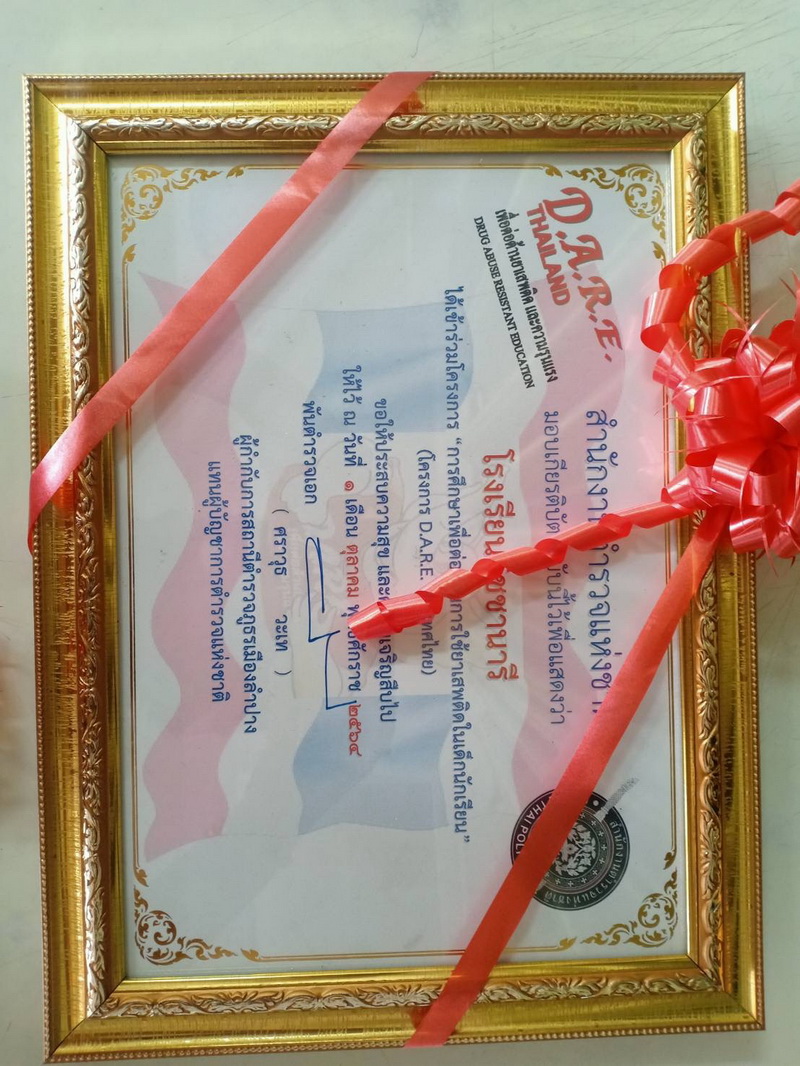 D.A.R.E.
THAILAND
เพื่อต่อต้านยาเสพติด และความรุนแรง
DRUG ABUSE RESISTANT EDUCATION
สำนักงาน ตำรวจแห่งชา
มอบเกียรติบัต บับนี้ไว้เพื่อแสดงว่า
โรงเรียน ชานารี
ได้เข้าร่วมโครงการ “การศึกษาเพื่อต่อ การใช้ยาเสพติดในเด็กนักเรียน”
(โครงการ D.A.R.E. ทศไทย)
ขอให้ประสบความสุข และค เจริญสืบไป
ให้ไว้ ณ วันที่ ๑ เดือน ตุลาคม พุ ศักราช ๒๕๖๔
พันตำรวจเอก
( ศราวุธ วะเท )
ผู้กำกับการสถานีตำรวจภูธรเมืองลำปาง
แทนผู้บัญชาการตำรวจแห่งชาติ
สำนักงานตำรวจแห่งชาติ
THAI POL